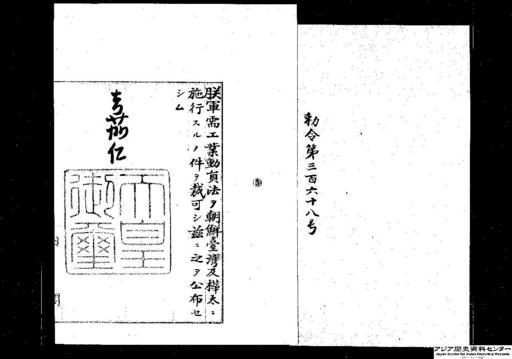 勅令第三百六十八号
朕軍需工業動員法ヲ朝鮮臺灣及樺太ニ
施行スルノ件ヲ裁可シ茲ニ之ヲ公布セ
シム
嘉仁
天皇
御璽
内
閣
アジア歴史資料センター
Japan Center for Asian Historical Records